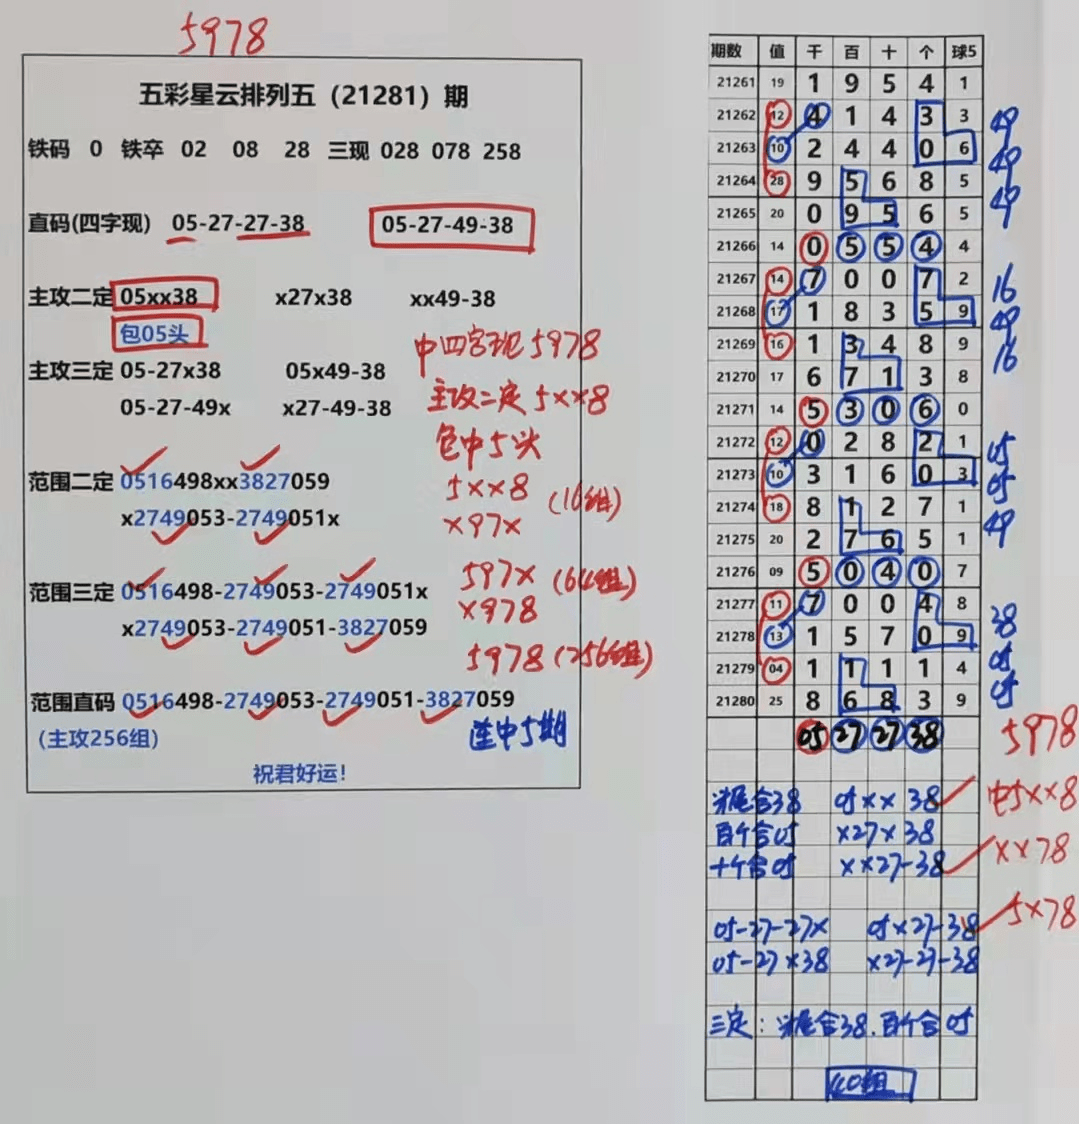 5978
五彩星云排列五（21281）期
铁码 0 铁卒 02 08 28 三现 028 078 258
直码(四字现) 05-27-27-38 05-27-49-38
主攻二定 05xx38 x27x38 xx49-38
包05头
中四字现5978
主攻三定 05-27x38 05x49-38
主攻二定5××8
05-27-49x x27-49-38
包中5头
范围二定 0516498xx3827059
5××8 (16组)
x2749053-2749051x
×97×
范围三定 0516498-2749053-2749051x
597× (64组)
x2749053-2749051-3827059
×978
5978 (256组)
范围直码 0516498-2749053-2749051-3827059
(主攻256组)
连中5期
祝君好运!
期数 值 千 百 十 个 球5
21261 19 1 9 5 4 1
21262 12 4 1 4 3 3 49
21263 10 2 4 4 0 6 49
21264 28 9 5 6 8 5 49
21265 20 0 9 5 6 5
21266 14 0 5 5 4 4
21267 14 7 0 0 7 2 16
21268 17 1 8 3 5 9 49
21269 16 1 3 4 8 9 16
21270 17 6 7 1 3 8
21271 14 5 3 0 6 0
21272 12 0 2 8 2 1 05
21273 10 3 1 6 0 3 05
21274 18 8 1 2 7 1 49
21275 20 2 7 6 5 1
21276 09 5 0 4 0 7
21277 11 7 0 0 4 8 38
21278 13 1 5 7 0 9 05
21279 04 1 1 1 1 4 05
21280 25 8 6 8 3 9
05 27 27 38 5978
合38 05×× 38 中5××8
百个合05 ×27×38
十个合05 ××27-38 ××78
05-27-27× 05×27-38 5×78
05-27×38 ×27-27-38
三定: 合38.百个合05
40组